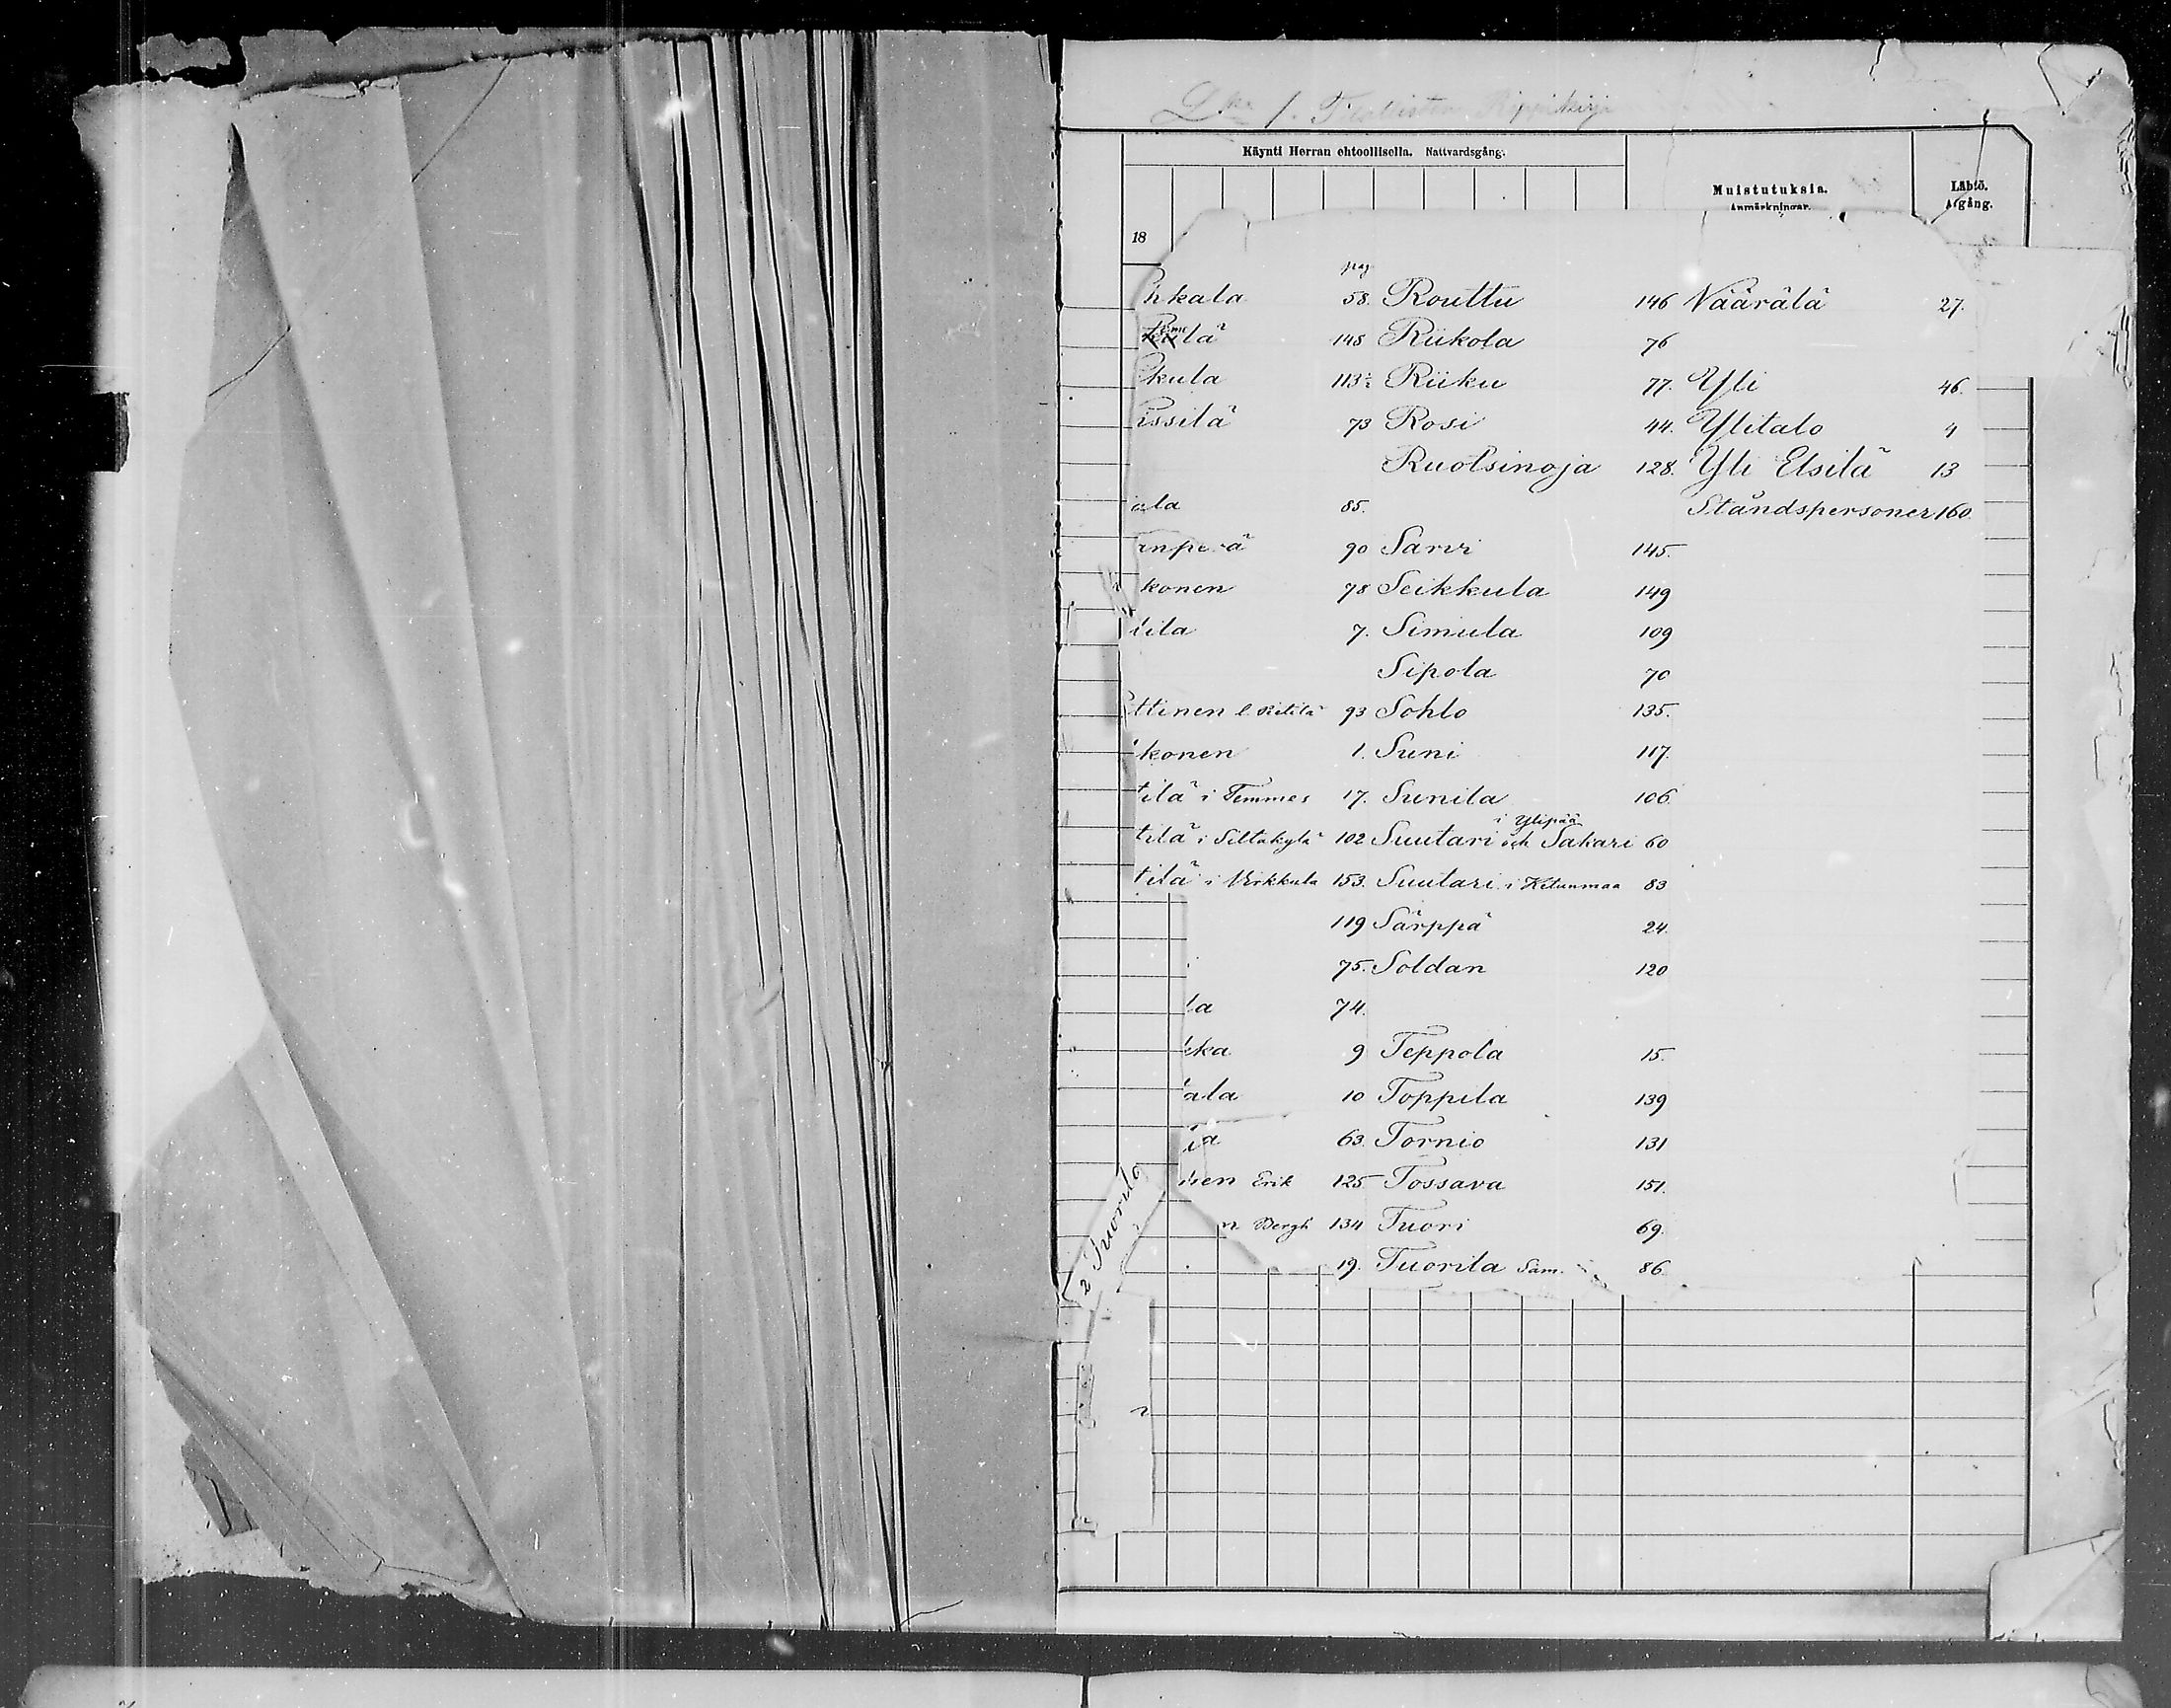 1. Rippikirja
Käynti Herran ehtoollisella. Nattvardsgång.
Muistutuksia.
Anmärkningar.
Lähtö.
Afgång.
18
pag
hkala 58. Routtu 146 Väärälä 27.
lä 148 Riikola 76
kula 113½ Riiku 77. Yli 46.
issilä 73 Rosi 44. Ylitalo 4
Ruotsinoja 128. Yli Elsilä 13
ala 85. Ståndspersoner 160.
anperä 90 Sarvi 145.
konen 78 Seikkula 149
lila 7. Simula 109
Sipola 70
ttinen l. Ritilä 93 Sohlo 135.
konen 1. Suni 117.
tilä i Temmes 17. Sunila 106.
i Ylipää
tilä i Siltakylä 102 Suutari och Sakari 60
tilä i Virkkula 153. Suutari i Ketunmaa 83
119 Särppä 24.
75. Soldan 120
la 74.
kka 9 Teppola 15.
ala 10 Toppila 139
ia 63. Tornio 131
nen Erik 125 Tossava 151.
n Bergh 134 Tuori 69.
19. Tuorila Sam. 86.
2 Tuorila